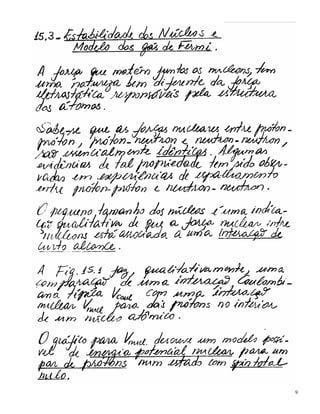 15,3 - Estabilidade dos Núcleos e
Modelo dos gás de Fermi.
A força que matém juntos os nucleons, tem
uma natureza bem diferente da força
eletrostática responsáveis pela estrutura
dos átomos.
Sabe-se que as forças nucleares entre próton-
próton, próton-neutron e neutron-neutron,
são essencialmente idênticas. Algumas
evidências de tal propriedade tem sido obser-
vadas em experiências de espalhamento
entre próton-próton e neutron-neutron.
O pequeno tamanho dos núcleos é uma indica-
ção qualitativa de que a força nuclear entre
nucleons está associada a uma interação de
curto alcance.
A Fig. 15.1 faz, qualitativamente, uma
comparação de uma interação Coulombi-
ana típica Vcoul com uma interação
nuclear Vnucl para dois prótons no interior
de um núcleo atômico.
O gráfico para Vnucl descreve um modelo possí-
vel de energia potencial nuclear para um
par de prótons num estado com spin total
nulo.
9